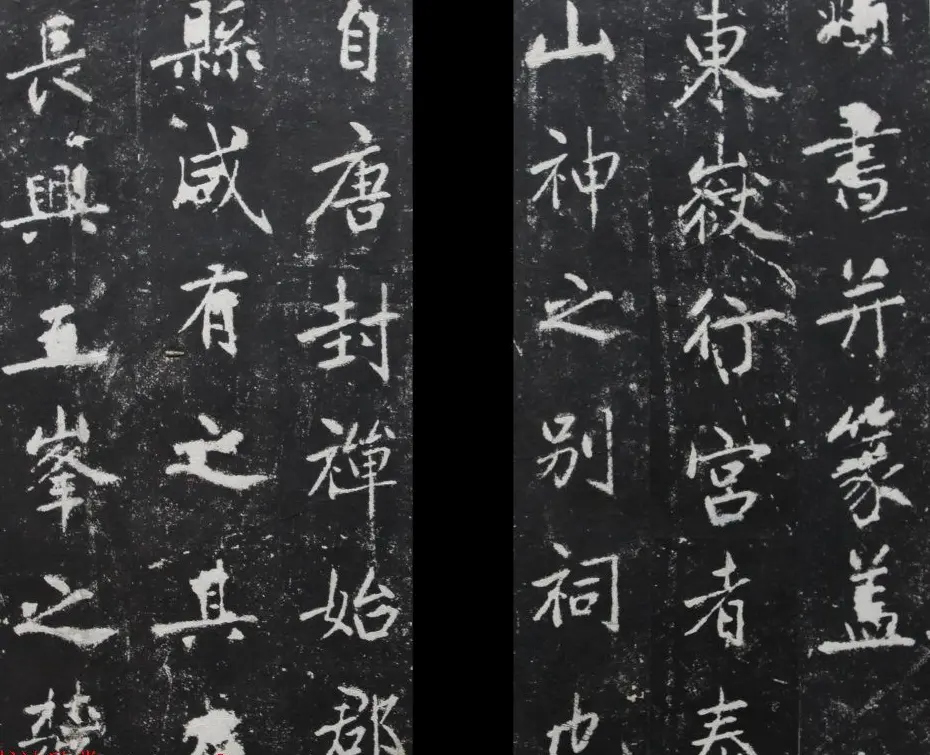 頫書并篆蓋
東嶽行宮者泰
山神之别祠也
自唐封禪始郡
縣咸有之其在
長興五峯之